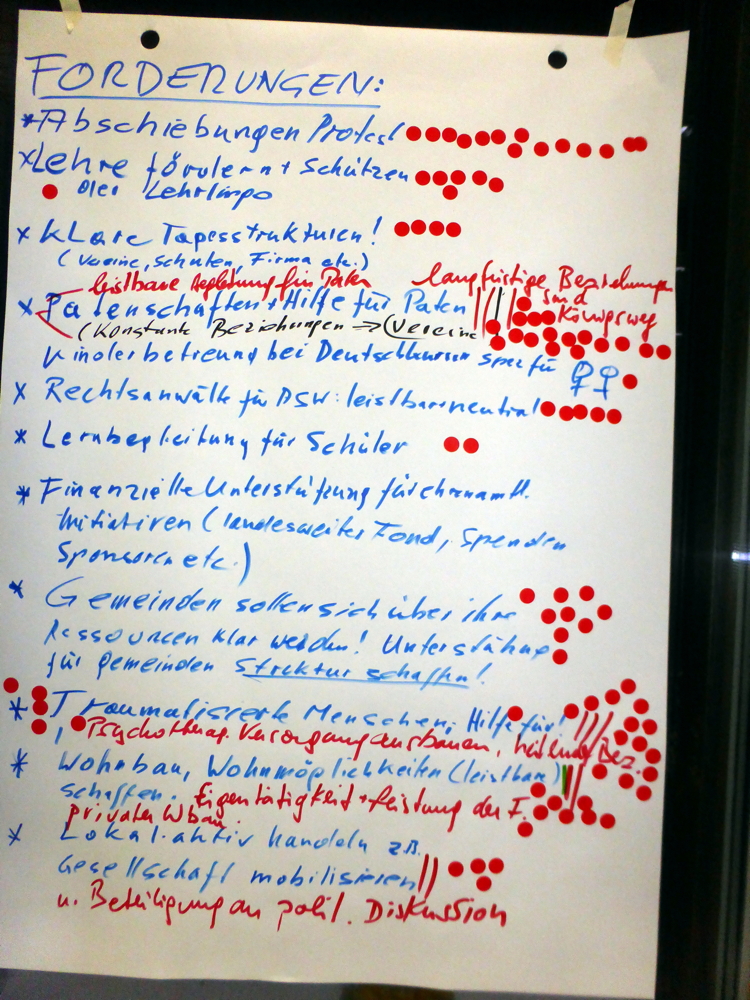 FORDERUNGEN:
* Abschiebungen Protest
* Lehre fördern + Schützen
oder Lehrlinge
* Klare Tagesstrukturen!
(Vereine, Schulen, Firma etc.)
leistbare Begleitung für Paten
langfristige Beziehungen
sind
* Patenschaften + Hilfe für Paten
Königsweg
(Konstante Beziehungen → Vereine
Kinderbetreuung bei Deutschkursen spez für ♀♀
* Rechtsanwälte für : leistbar neutral
* Lernbegleitung für Schüler
* Finanzielle Unterstützung für ehrenamtl.
Initiativen (landesweiter Fond, Spenden
Sponsoren etc.)
* Gemeinden sollen sich über ihre
Ressourcen klar werden! Unterstützung
für gemeinden Struktur schaffen!
* Traumatisierte Menschen: Hilfe für!
Psychotherap. Versorgung ausbauen, Bez.
* Wohnbau, Wohnmöglichkeiten (leistbar)
schaffen. Eigentätigkeit + leistung der F.
privater Wbau
* Lokal-aktiv handeln z.B.
Gesellschaft mobilisieren
u. Beteiligung an polit. Diskussion